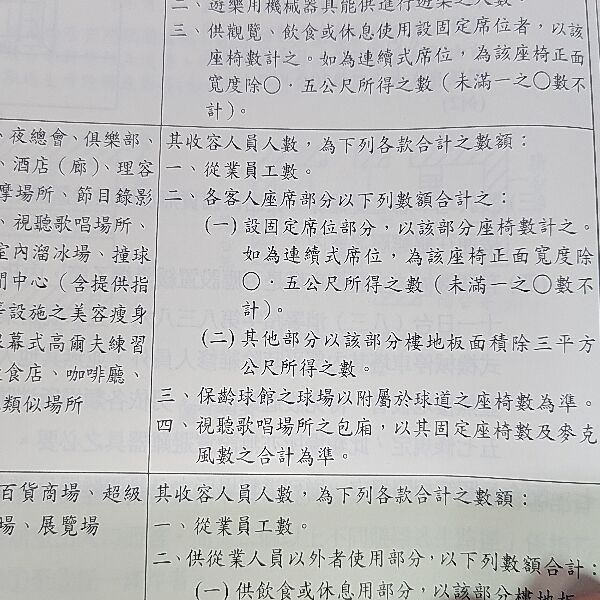 二、遊樂用機械器具能供進行遊樂之人數。
三、供觀覽、飲食或休息使用設固定席位者，以該
座椅數計之。如為連續式席位，為該座椅正面
寬度除○．五公尺所得之數（未滿一之○數不
計）。
、夜總會、俱樂部、
、酒店（廊）、理容
摩場所、節目錄影
、視聽歌唱場所、
室內溜冰場、撞球
閒中心（含提供指
設施之美容瘦身
幕式高爾夫練習
食店、咖啡廳、
類似場所
其收容人員人數，為下列各款合計之數額：
一、從業員工數。
二、各客人座席部分以下列數額合計之：
(一)設固定席位部分，以該部分座椅數計之。
如為連續式席位，為該座椅正面寬度除
○．五公尺所得之數（未滿一之○數不
計）。
(二)其他部分以該部分樓地板面積除三平方
公尺所得之數。
三、保齡球館之球場以附屬於球道之座椅數為準。
四、視聽歌唱場所之包廂，以其固定座椅數及麥克
風數之合計為準。
百貨商場、超級
場、展覽場
其收容人員人數，為下列各款合計之數額：
一、從業員工數。
二、供從業人員以外者使用部分，以下列數額合計：
(一)供飲食或休息用部分，以該部分樓地板